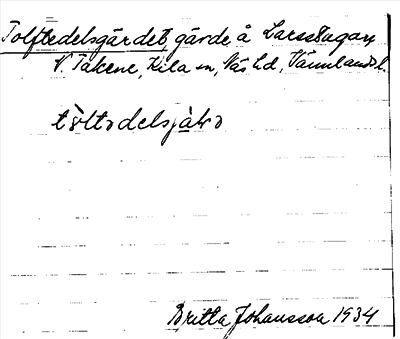 Tolftedelsgärdet, gärde å Larsstugan,
V. Takene, Kila sn, Näs hd, Värmlands l.
Britta Johansson 1934